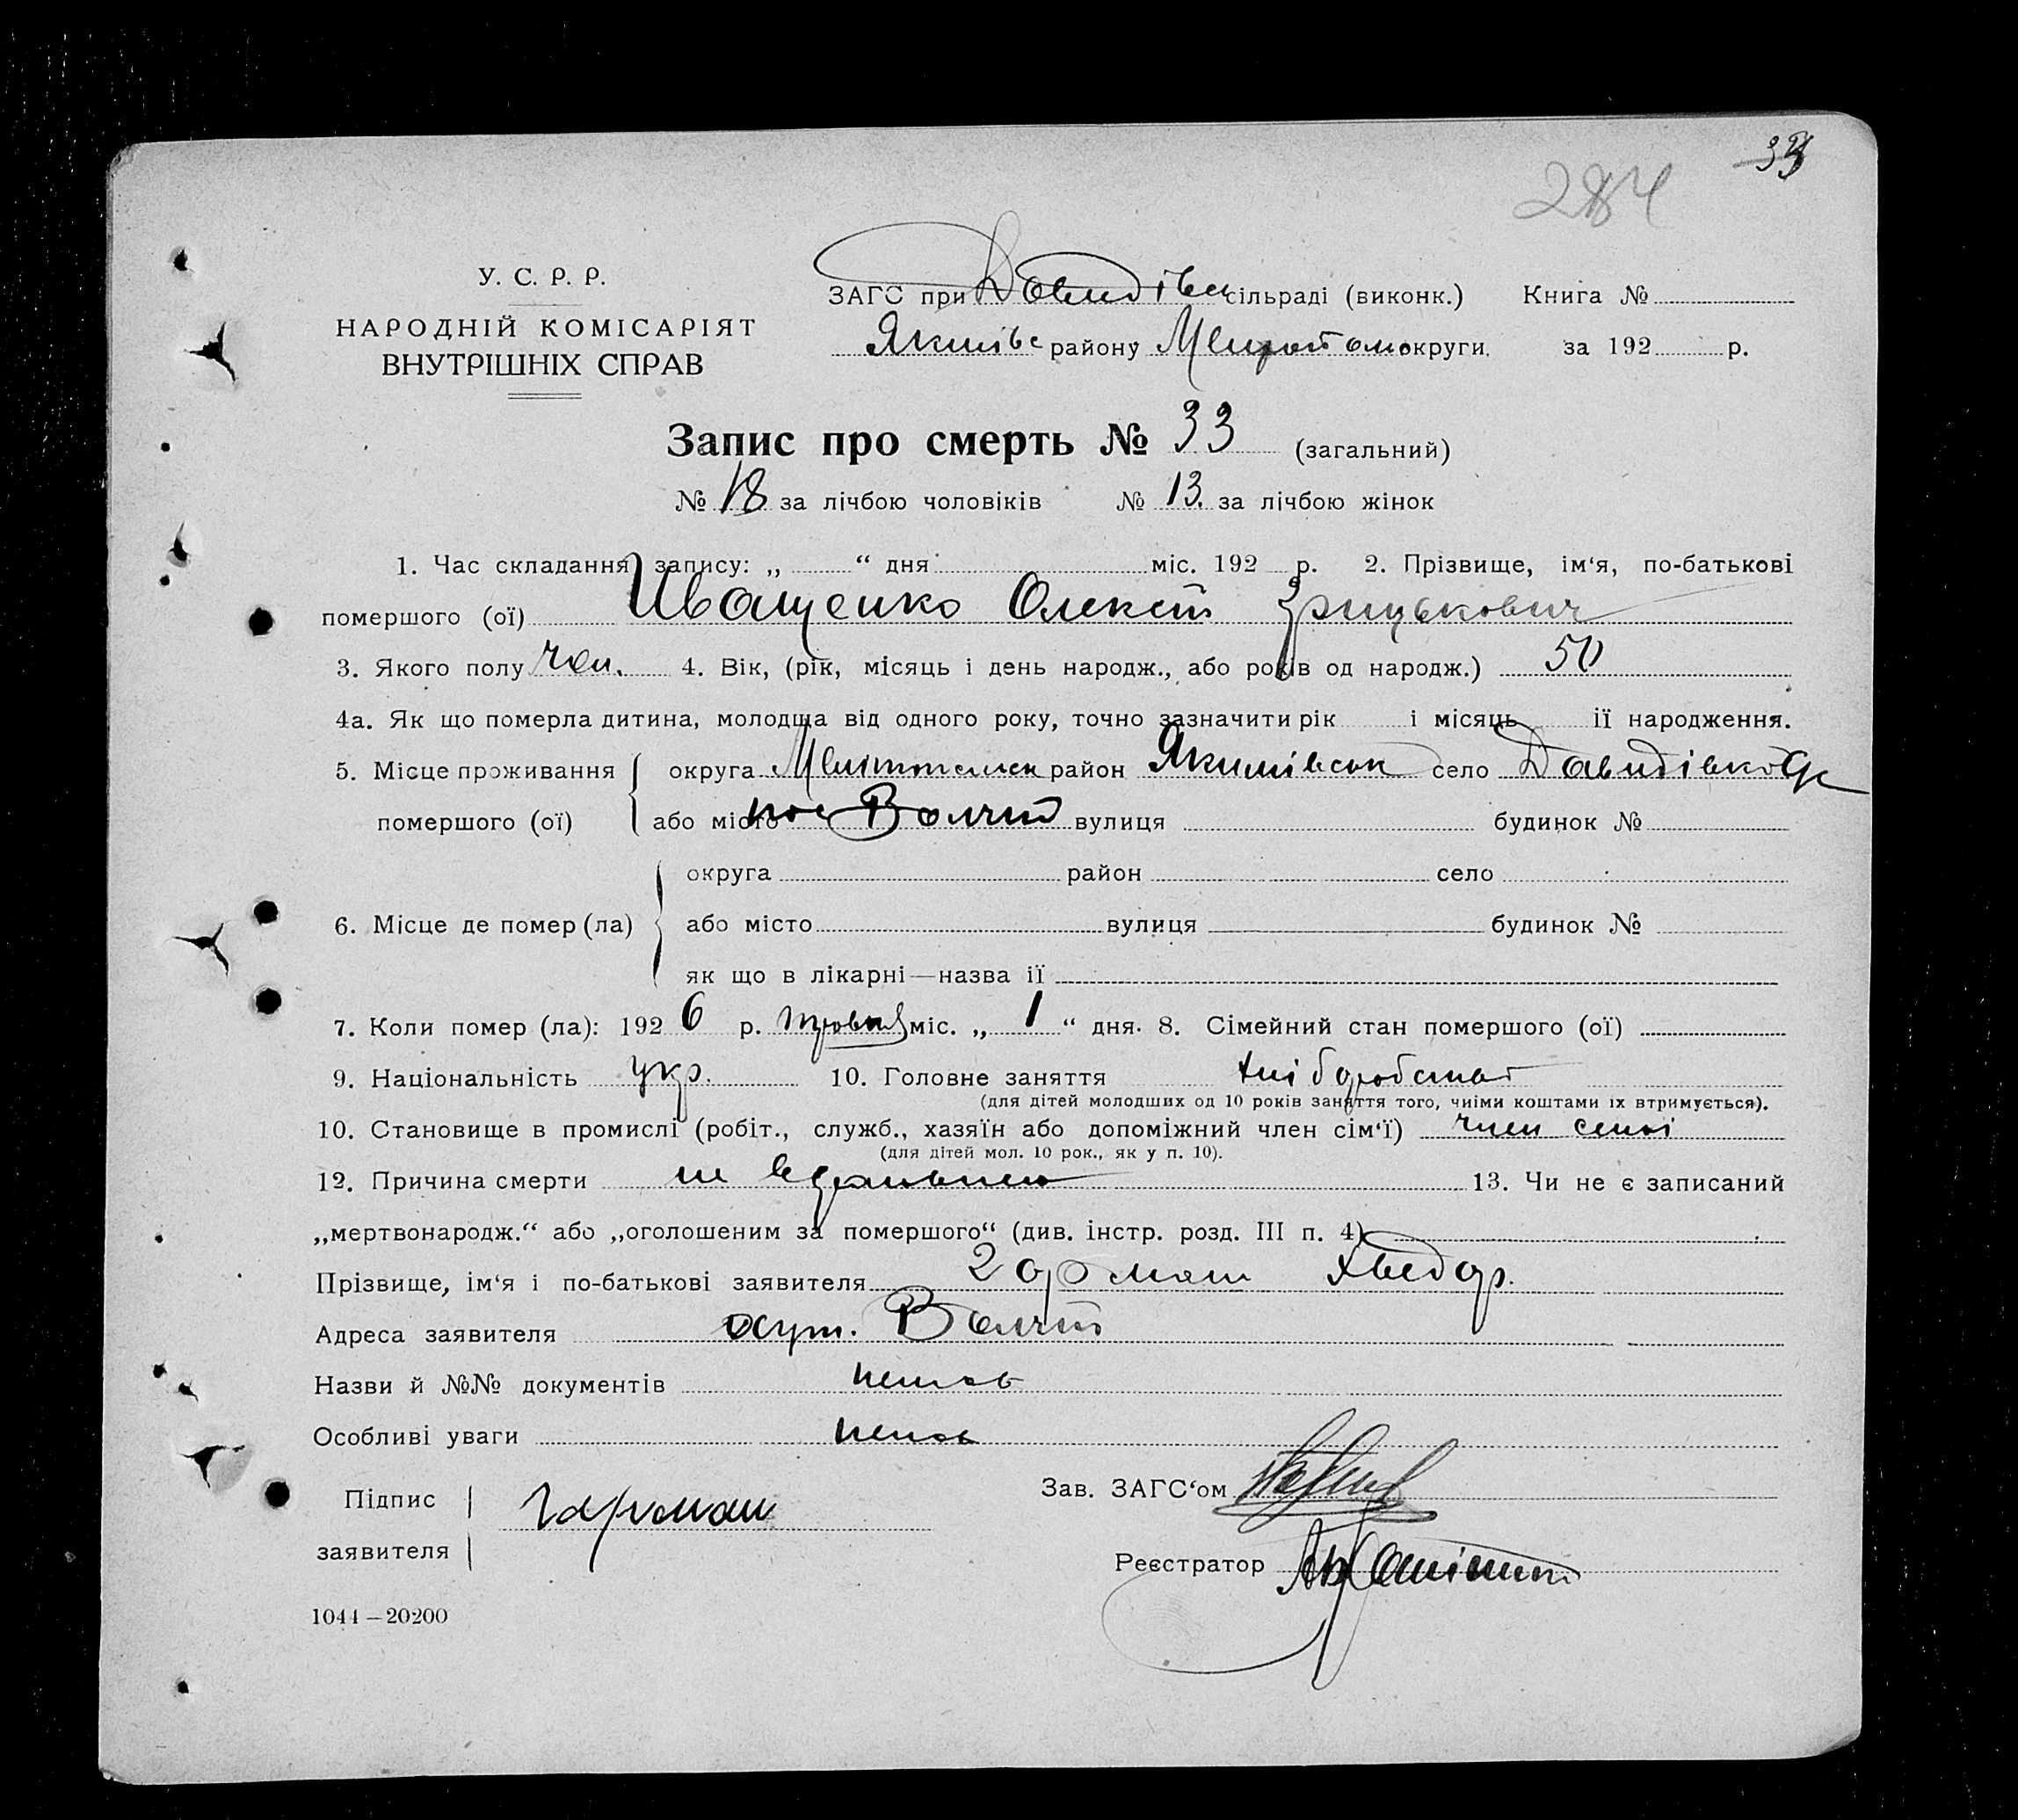 33
284
У. С. Р. Р.
НАРОДНІЙ КОМІСАРІЯТ
ВНУТРІШНІХ СПРАВ
ЗАГС при Давидівск сільраді (виконк.) Книга №
Якимівс району округи. за 192 р.
Запис про смерть № 33 (загальний)
№ 18 за лічбою чоловіків № 13. за лічбою жінок
1. Час складання запису: „ “ дня міс. 192 р. 2. Прізвище, ім‘я, по-батькові
помершого (ої) Иващенко Олексій Грицькович
3. Якого полу чол. 4. Вік, (рік, місяць і день народж., або років од народж.) 50
4а. Як що померла дитина, молодща від одного року, точно зазначити рік і місяць ії народження.
5. Місце проживання округа район Якимівськ село Давидівка
помершого (ої) або місто пос Волчий вулиця будинок №
округа район село
6. Місце де помер (ла) або місто вулиця будинок №
як що в лікарні—назва ії
7. Коли помер (ла): 1926 р. міс. „ 1 “ дня. 8. Сімейний стан помершого (ої)
9. Національність укр. 10. Головне заняття хліборобство
(для дітей молодших од 10 років заняття того, чиїми коштами їх втримується).
10. Становище в промислі (робіт., служб., хазяїн або допоміжний член сім‘ї) член семі
(для дітей мол. 10 рок., як у п. 10).
12. Причина смерти 13. Чи не є записаний
„мертвонародж.“ або „оголошеним за помершого“ (див. інстр. розд. III п. 4)
Прізвище, ім‘я і по-батькові заявителя Гармаш Хведор.
Адреса заявителя хут. Волчий
Назви й №№ документів немає
Особливі уваги немає
Підпис Гармаш Зав. ЗАГС‘ом
заявителя Реєстратор
1044—20200